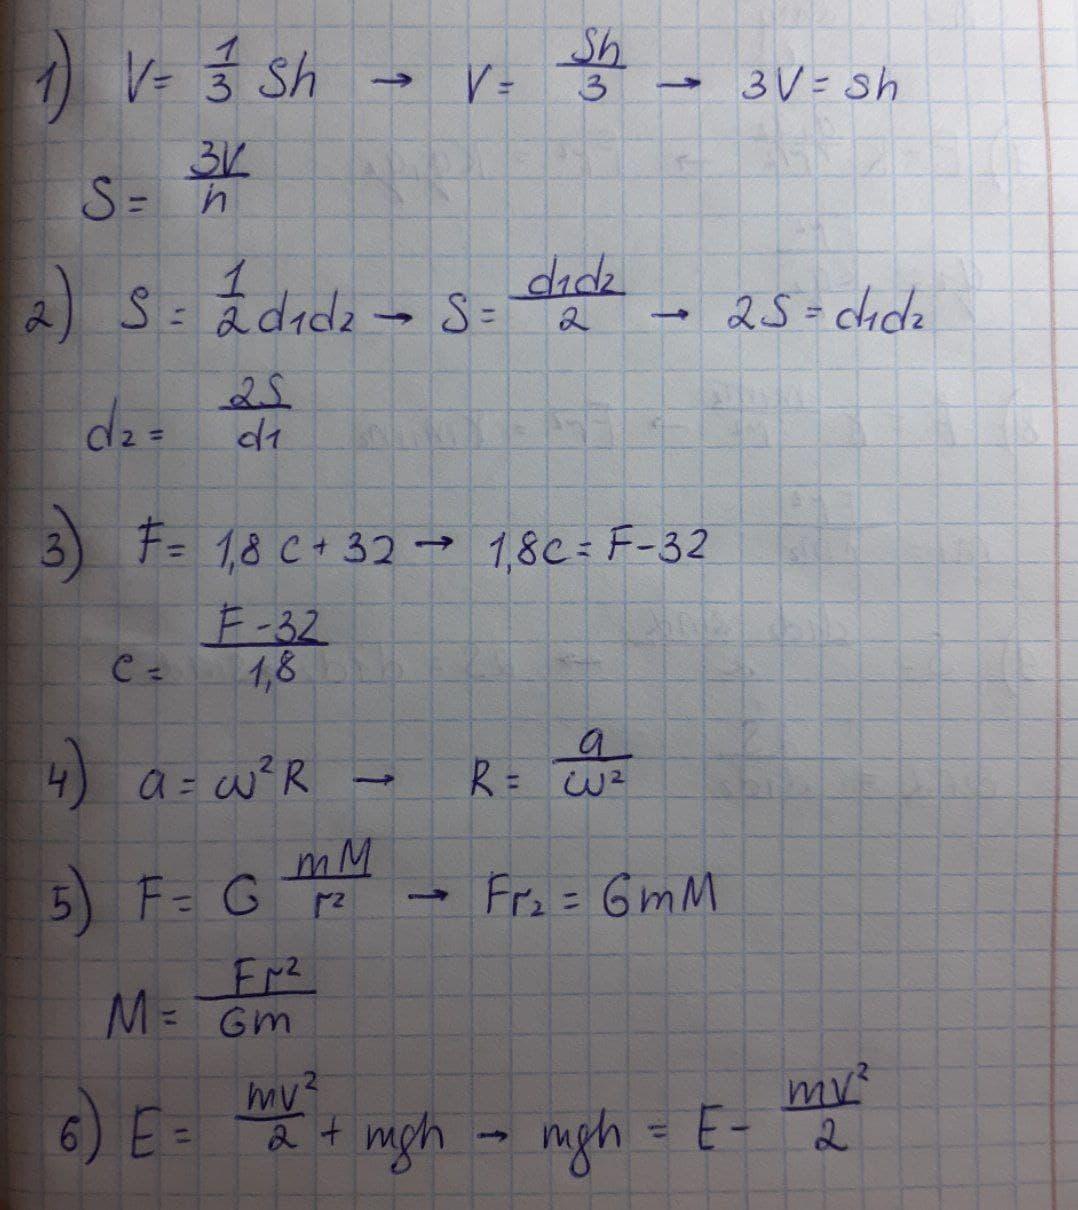 1) V = 1/3 Sh → V = Sh/3 → 3V = Sh
S = 3V/h
2) S = 1/2 d1d2 → S = d1d2/2 → 2S = d1d2
d2 = 2S/d1
3) F = 1,8 C + 32 → 1,8C = F - 32
C = F - 32/1,8
4) a = ω²R → R = a/ω²
5) F = G mM/r² → Fr2 = GmM
M = Fr²/Gm
6) E = mv²/2 + mgh → mgh = E - mv²/2